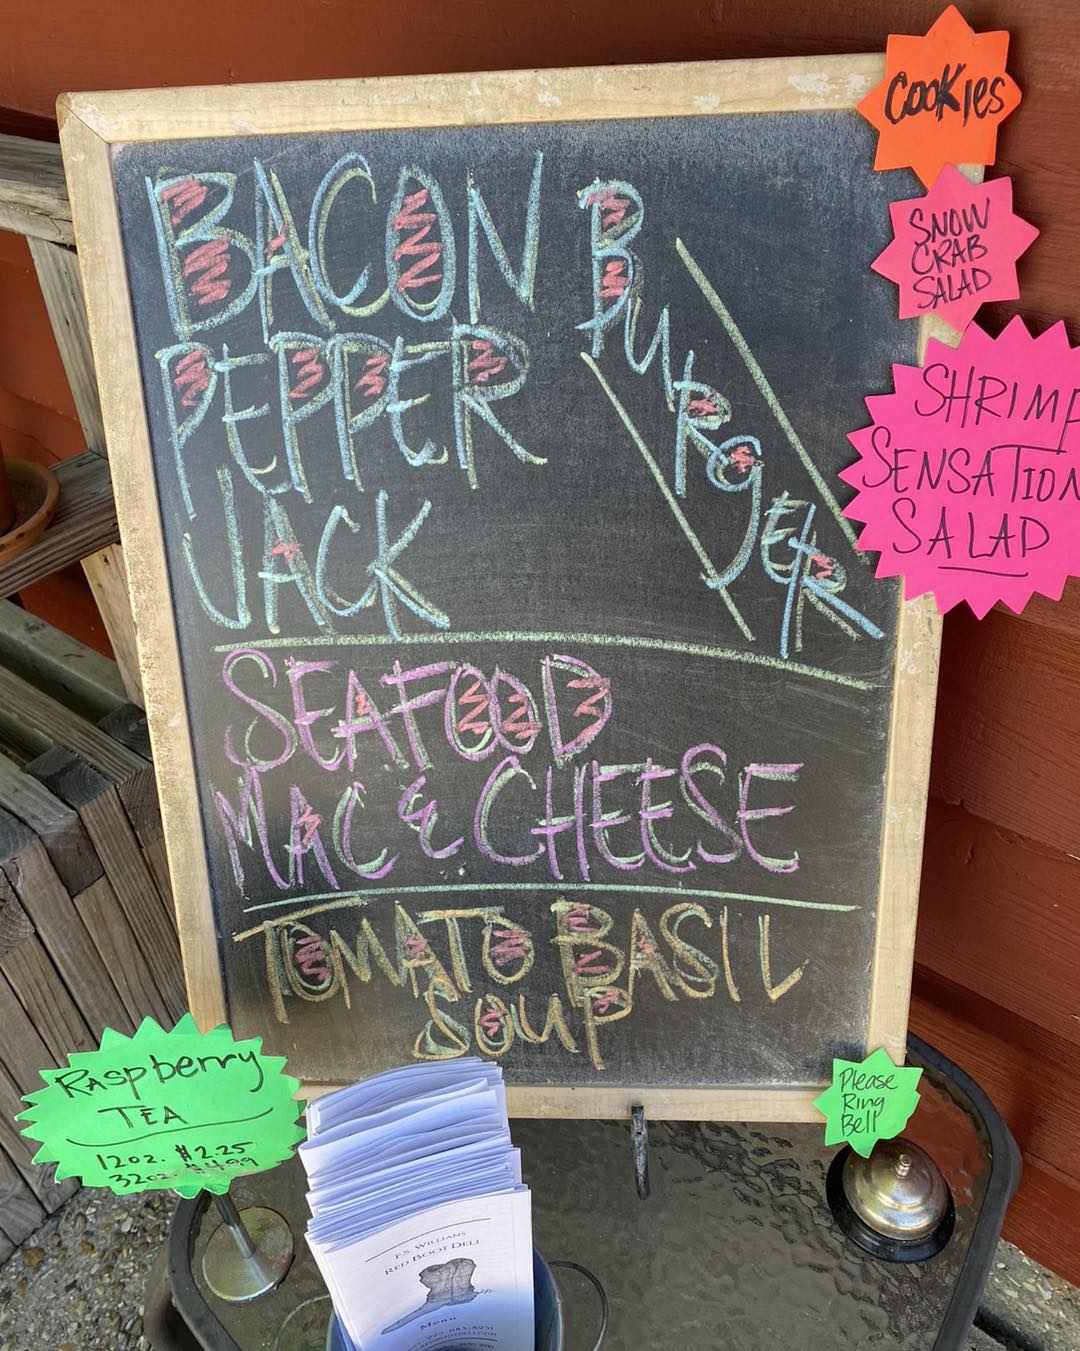 BACON
PEPPER
JACK
BURGER
SEAFOOD
MAC & CHEESE
TOMATO BASIL
SOUP
COOKIES
SNOW
CRAB
SALAD
SHRIMP
SENSATION
SALAD
Raspberry
TEA
12oz. $2.25
32oz. $4.99
Please
Ring
Bell
P.S. WILLIAMS
RED BOOT DELI
MENU